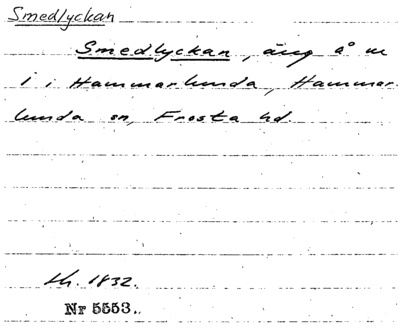 Smedlyckan
Smedlyckan, äng å nr
1 i Hammarlunda, Hammar-
lunda sn, Frosta hd.
Lh. 1832.
Nr 5553.